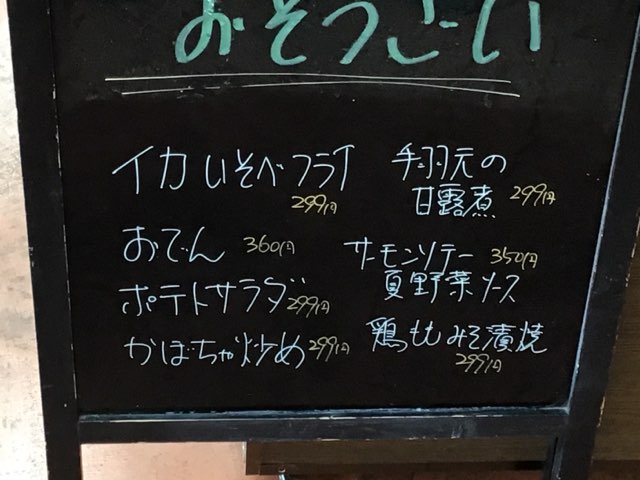 おそうざい
イカいそべフライ
299円
おでん 360円
ポテトサラダ 299円
かぼちゃ炒め 299円
手羽元の
甘露煮 299円
サーモンソテー 350円
夏野菜ソース
鶏ももみそ漬焼
299円